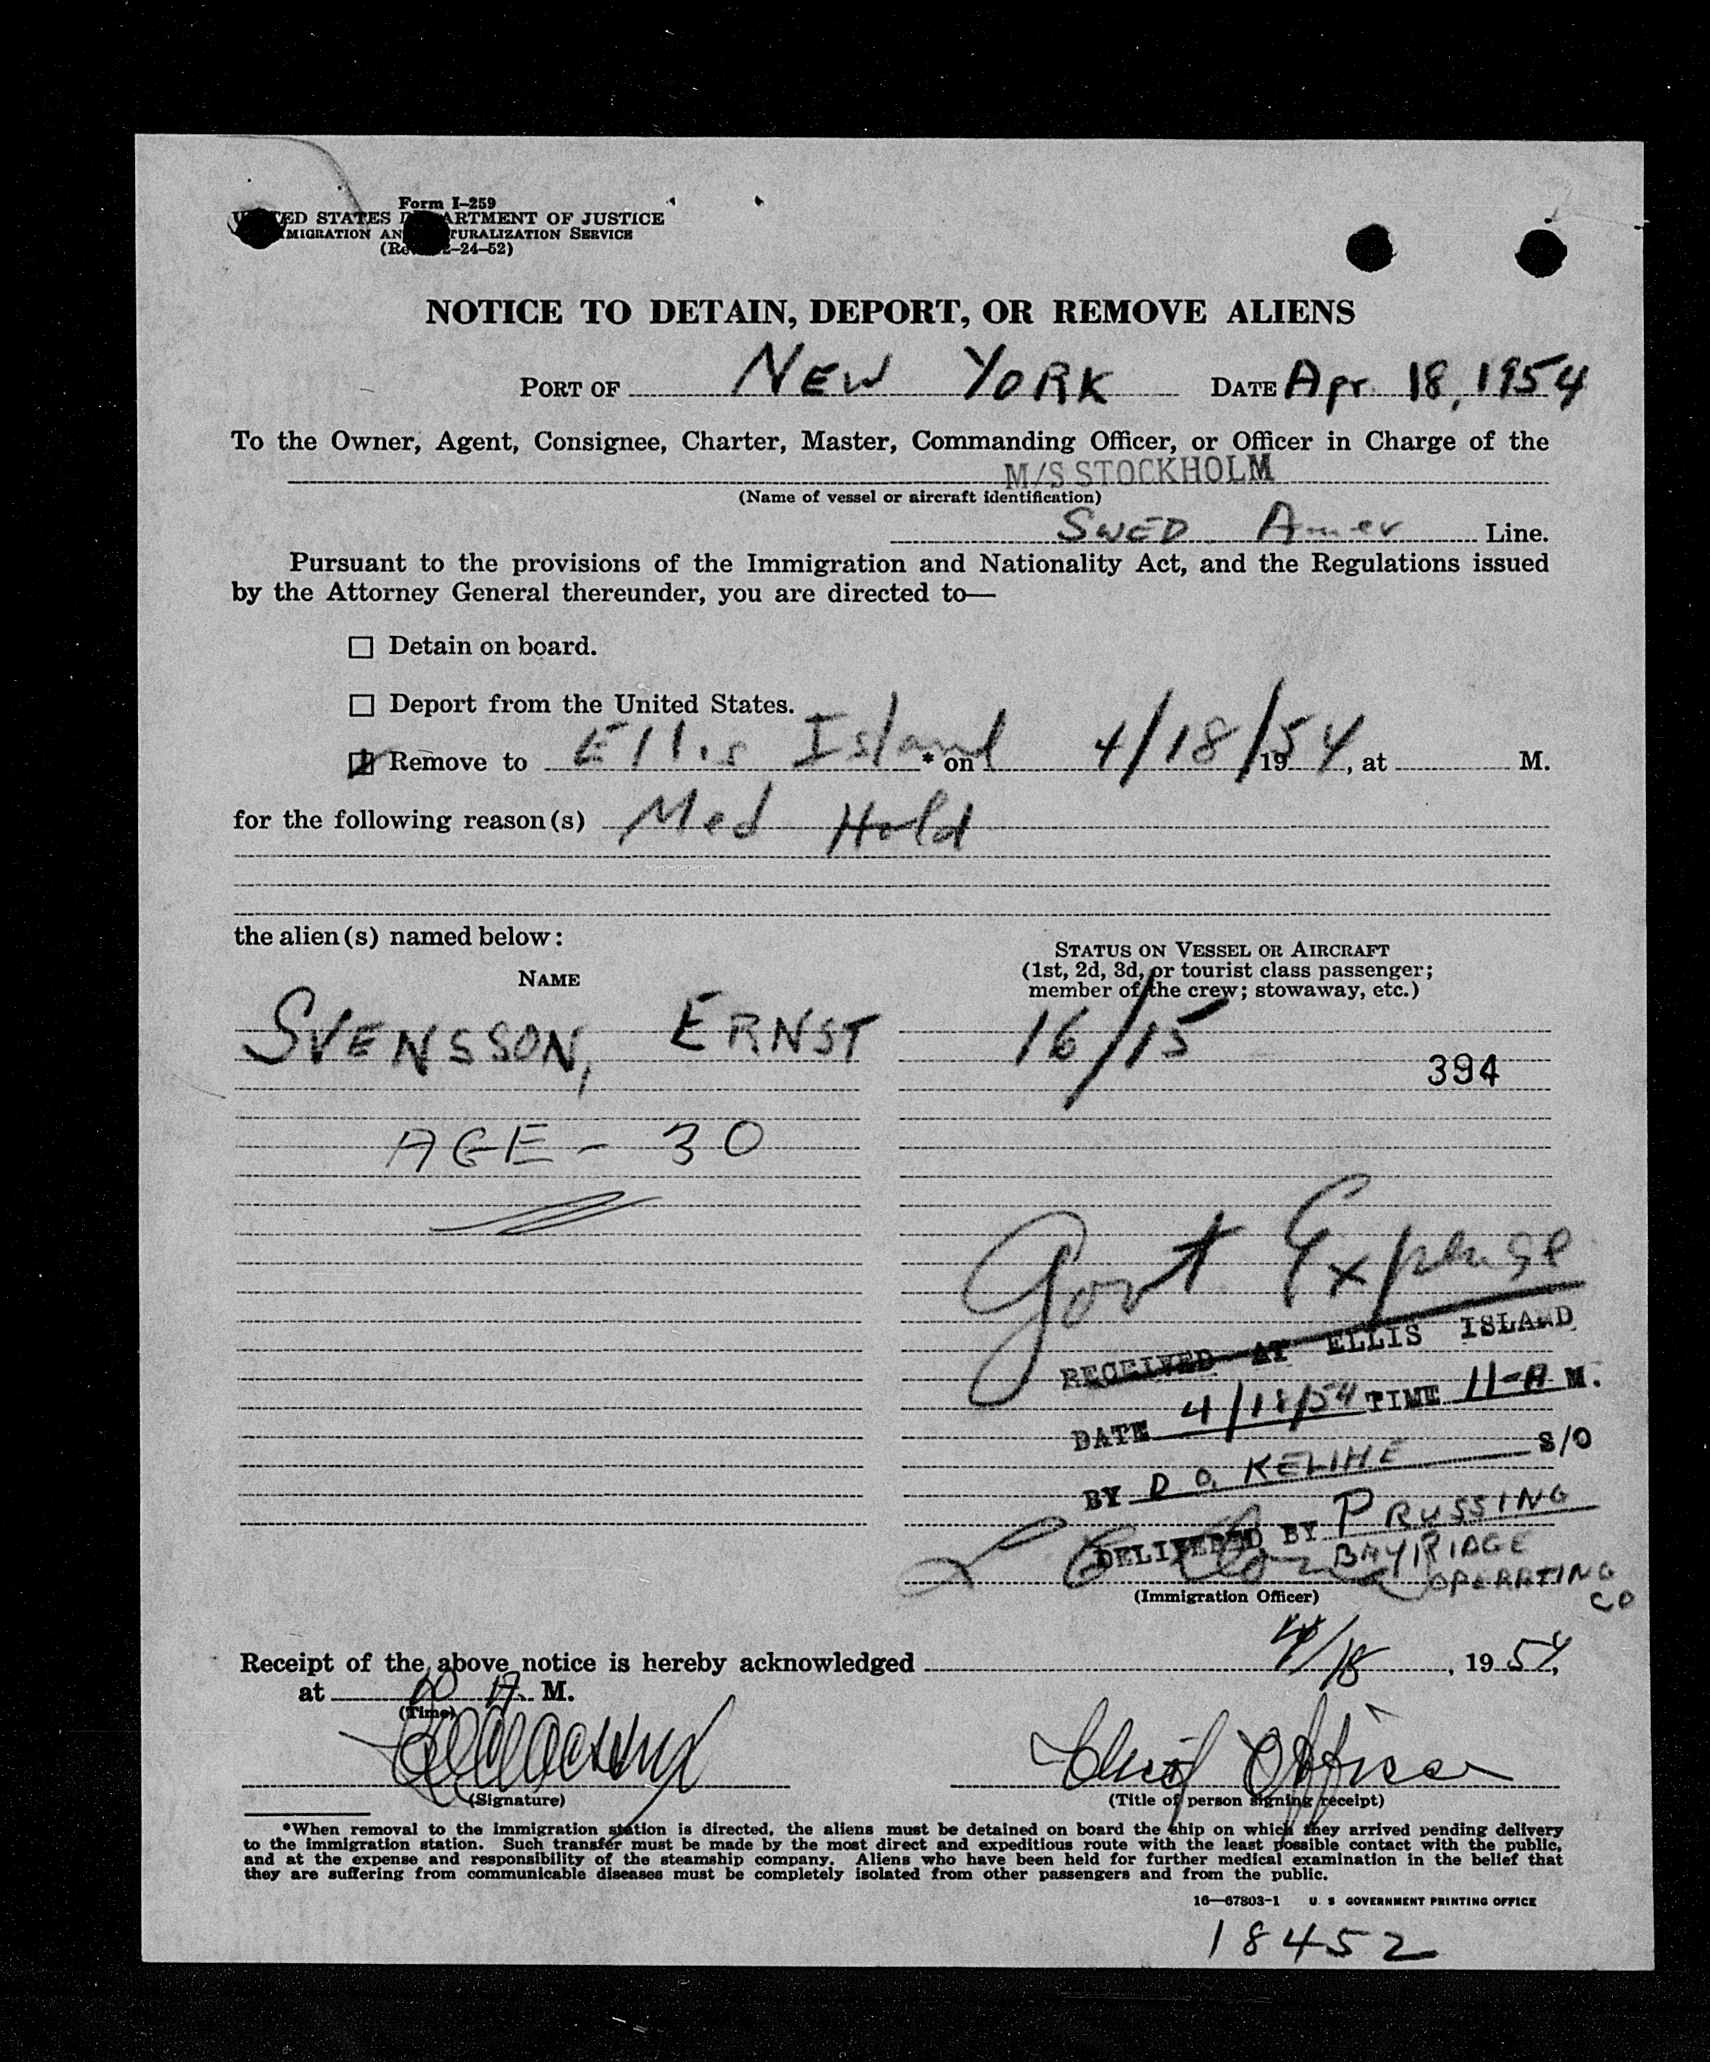 Form I-259
UNITED STATES DEPARTMENT OF JUSTICE
IMMIGRATION AND NATURALIZATION SERVICE
(Rev. 12-24-52)
NOTICE TO DETAIN, DEPORT, OR REMOVE ALIENS
PORT OF NEW YORK DATE Apr 18, 1954
To the Owner, Agent, Consignee, Charter, Master, Commanding Officer, or Officer in Charge of the
M/S STOCKHOLM
(Name of vessel or aircraft identification)
SWED. Amer Line.
Pursuant to the provisions of the Immigration and Nationality Act, and the Regulations issued
by the Attorney General thereunder, you are directed to—
Detain on board.
Deport from the United States.
Remove to Ellis Island * on 4/18/1954, at M.
for the following reason(s) Med Hold
the alien(s) named below:
NAME
STATUS ON VESSEL OR AIRCRAFT
(1st, 2d, 3d, or tourist class passenger;
member of the crew; stowaway, etc.)
SVENSSON, ERNST 16/15
394
AGE - 30
Govt. Expense
RECEIVED AT ELLIS ISLAND
DATE 4/18/54 TIME 11-A M.
BY D O. KELIHE S/O
DELIVERED BY PRUSSING
BAY RIDGE
OPERATING
CO
(Immigration Officer)
Receipt of the above notice is hereby acknowledged 4/18, 1954,
at A. M.
(Time)
Chief Officer
(Signature) (Title of person signing receipt)
*When removal to the immigration station is directed, the aliens must be detained on board the ship on which they arrived pending delivery
to the immigration station. Such transfer must be made by the most direct and expeditious route with the least possible contact with the public,
and at the expense and responsibility of the steamship company. Aliens who have been held for further medical examination in the belief that
they are suffering from communicable diseases must be completely isolated from other passengers and from the public.
16—67803-1 U. S. GOVERNMENT PRINTING OFFICE
18452